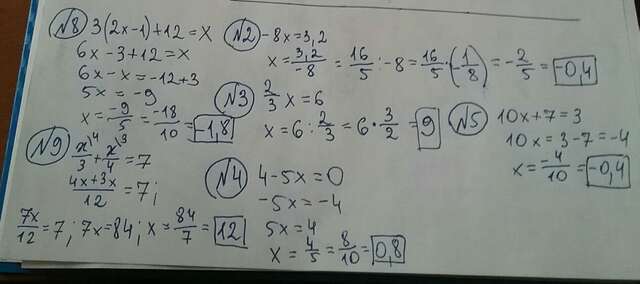 №8 3(2x-1)+12=x
6x-3+12=x
6x-x=-12+3
5x=-9
x=-9/5=-18/10=-1,8
№2 -8x=3,2
x=3,2/-8=16/5:-8=16/5·(-1/8)=-2/5=-0,4
№3 2/3 x=6
x=6:2/3=6·3/2=9
№5 10x+7=3
10x=3-7=-4
x=-4/10=-0,4
№9 x\4/3+x\3/4=7
4x+3x/12=7;
7x/12=7; 7x=84; x=84/7=12
№4 4-5x=0
-5x=-4
5x=4
x=4/5=8/10=0,8